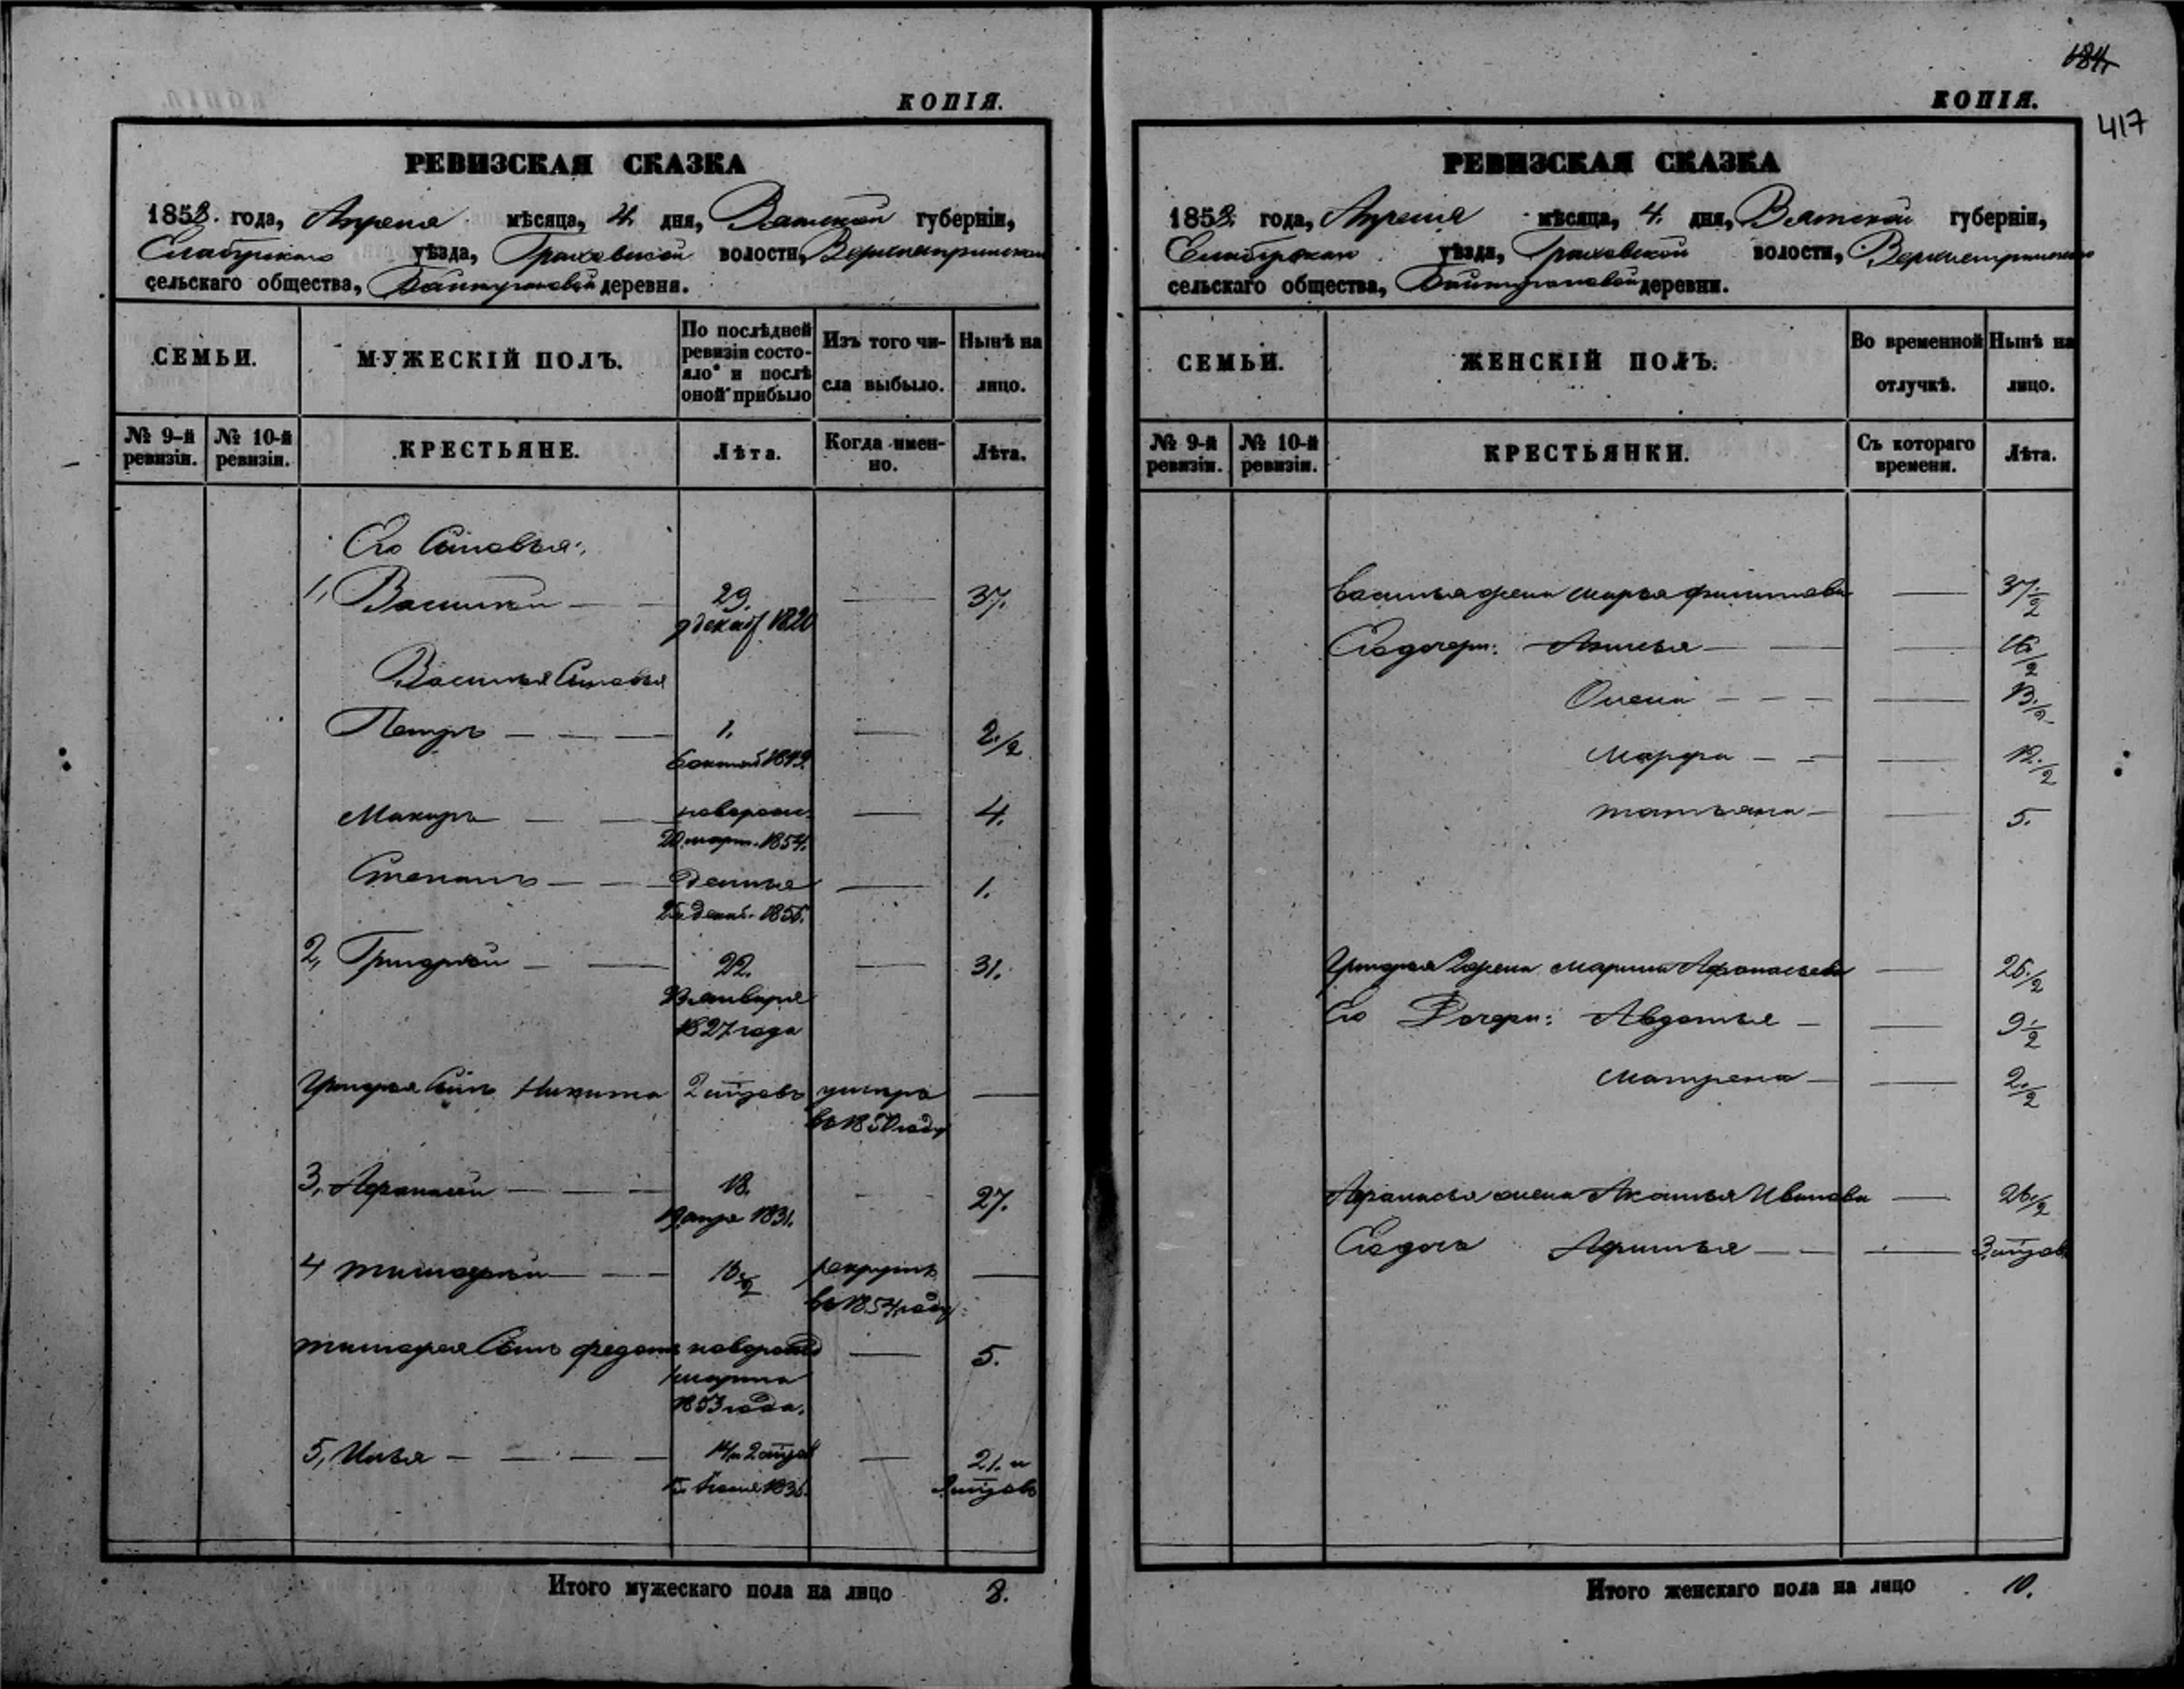 КОПІЯ.
РЕВИЗСКАЯ СКАЗКА
1858. года, Апреля мѣсяца, 4. дня, Вятской губерніи,
Елабужскаго уѣзда, Граховской волости,
сельскаго общества, Байтугановой деревни.
СЕМЬИ.
МУЖЕСКІЙ ПОЛЪ.
По послѣдней ревизіи состояло и послѣ оной прибыло
Изъ того числа выбыло.
Нынѣ на лицо.
№ 9-й ревизіи.
№ 10-й ревизіи.
КРЕСТЬЯНЕ.
Лѣта.
Когда именно.
Лѣта.
Его Сыновья:
1, Василий 29. 37.
9 декаб 1820
Василья Сыновья
Петръ 1. 2 1/2
Макаръ новорож. 4.
20 март. 1854.
Степанъ 1.
2, Григорий 22. 31.
Января
1827 года
Григорья Сынъ Никита умеръ
въ 1850 году
3, Афанасий 18. 27.
1831.
4 Тимофей рекрутъ
въ 1854 году
Тимофея Сынъ Федотъ новорожд 5.
марта
1853 года.
5, Илья 21. и
Итого мужескаго пола на лицо 8.
184
417
КОПІЯ.
РЕВИЗСКАЯ СКАЗКА
1858. года, Апреля мѣсяца, 4. дня, Вятской губерніи,
Елабужскаго уѣзда, Граховской волости,
сельскаго общества, Байтугановой деревни.
СЕМЬИ.
ЖЕНСКІЙ ПОЛЪ.
Во временной отлучкѣ.
Нынѣ на лицо.
№ 9-й ревизіи.
№ 10-й ревизіи.
КРЕСТЬЯНКИ.
Съ котораго времени.
Лѣта.
Василья жена Марья Филипова 37 1/2
Его дочери: 16 1/2
Олена 13 1/2
Марфа 12 1/2
Татьяна 5.
Григорья жена Марина Афонасьева
Его Дочери: Авдотья 9 1/2
Матрена 2 1/2
Афанасья жена Иванова
Его дочь
Итого женскаго пола на лицо 10.